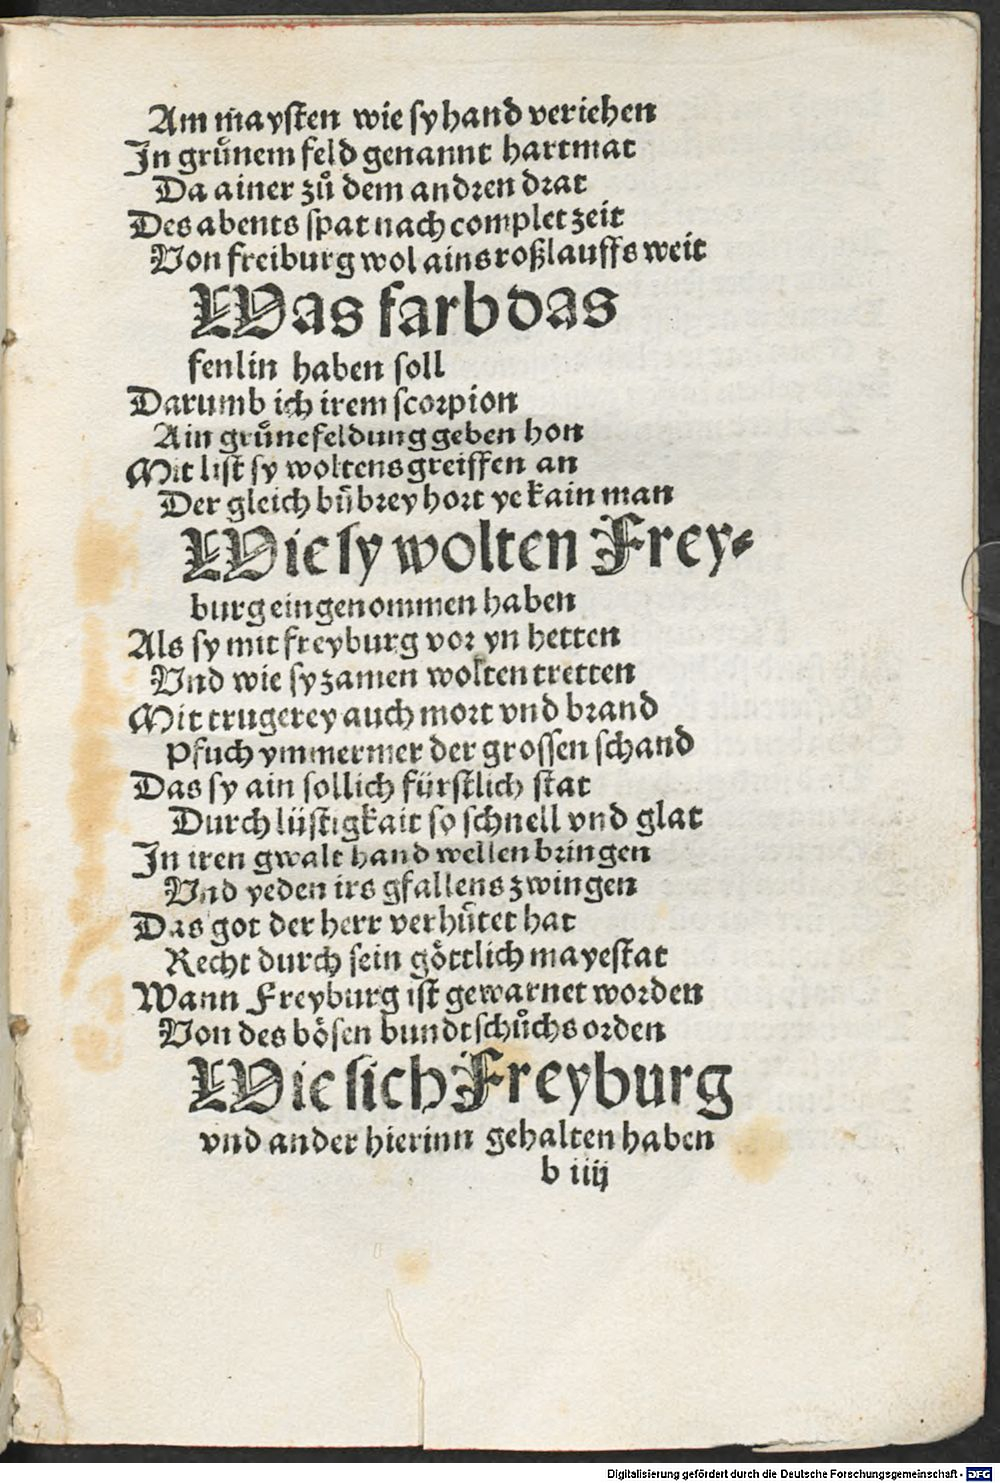 Am maysten wie sy hand veriehen
In grůnem feld genannt hartmat
Da ainer zů dem andren drat
Des abents spat nach complet zeit
Von freiburg wol ains roßlauffs weit
Was farb das
fenlin haben soll
Darumb ich irem scorpion
Ain grůne feldung geben hon
Mit list sy woltens greiffen an
Der gleich bůbrey hort ye kain man
Wie sy wolten Frey⸗
burg eingenommen haben
Als sy mit freyburg vor yn hetten
Vnd wie sy zamen wolten tretten
Mit trugerey auch mort vnd brand
Pfuch ymmermer der grossen schand
Das sy ain sollich fürstlich stat
Durch lüstigkait so schnell vnd glat
In iren gwalt hand wellen bringen
Vnd yeden irs gfallens zwingen
Das got der herr verhůtet hat
Recht durch sein göttlich mayestat
Wann Freyburg ist gewarnet worden
Von des bösen bundtschůchs orden
Wie sich Freyburg
vnd ander hierinn gehalten haben
b iiij
Digitalisierung gefördert durch die Deutsche Forschungsgemeinschaft - DFG